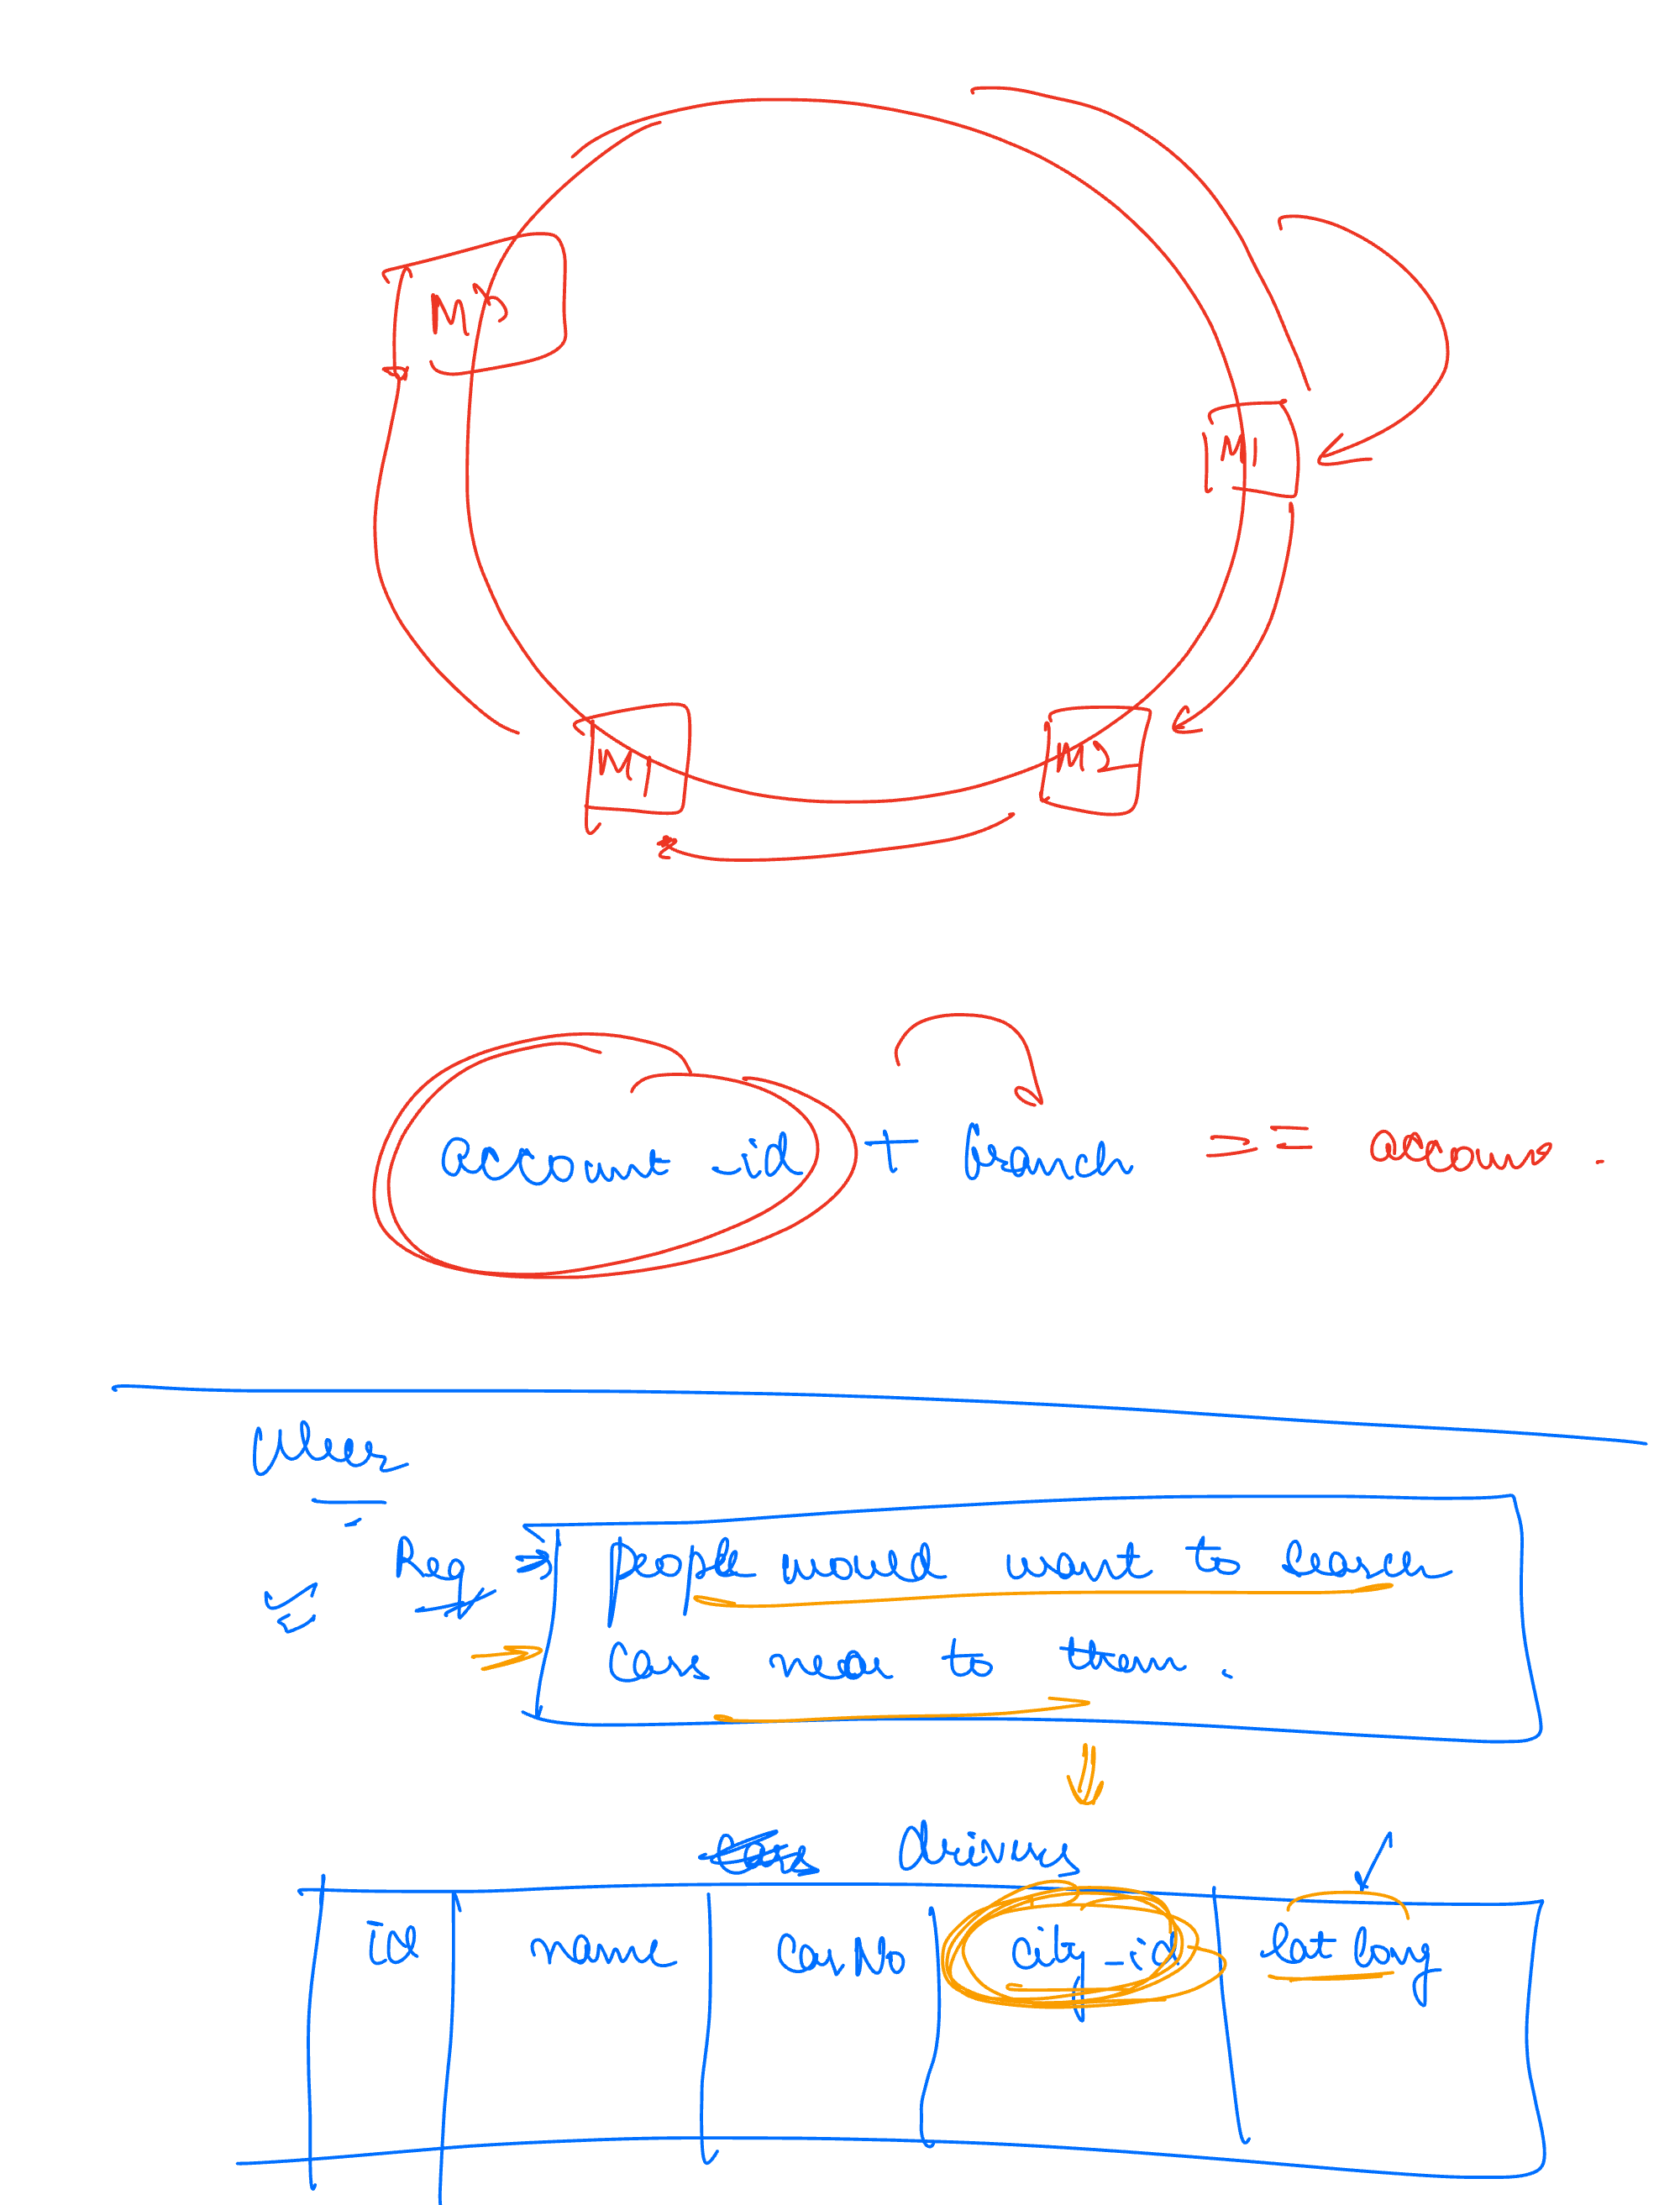 M3
M1
M1
M2
account_id + branch == accounts.
Uber
Req → people would want to search
cars near to them.
Cars Drivers
id name Car No City_id lat long